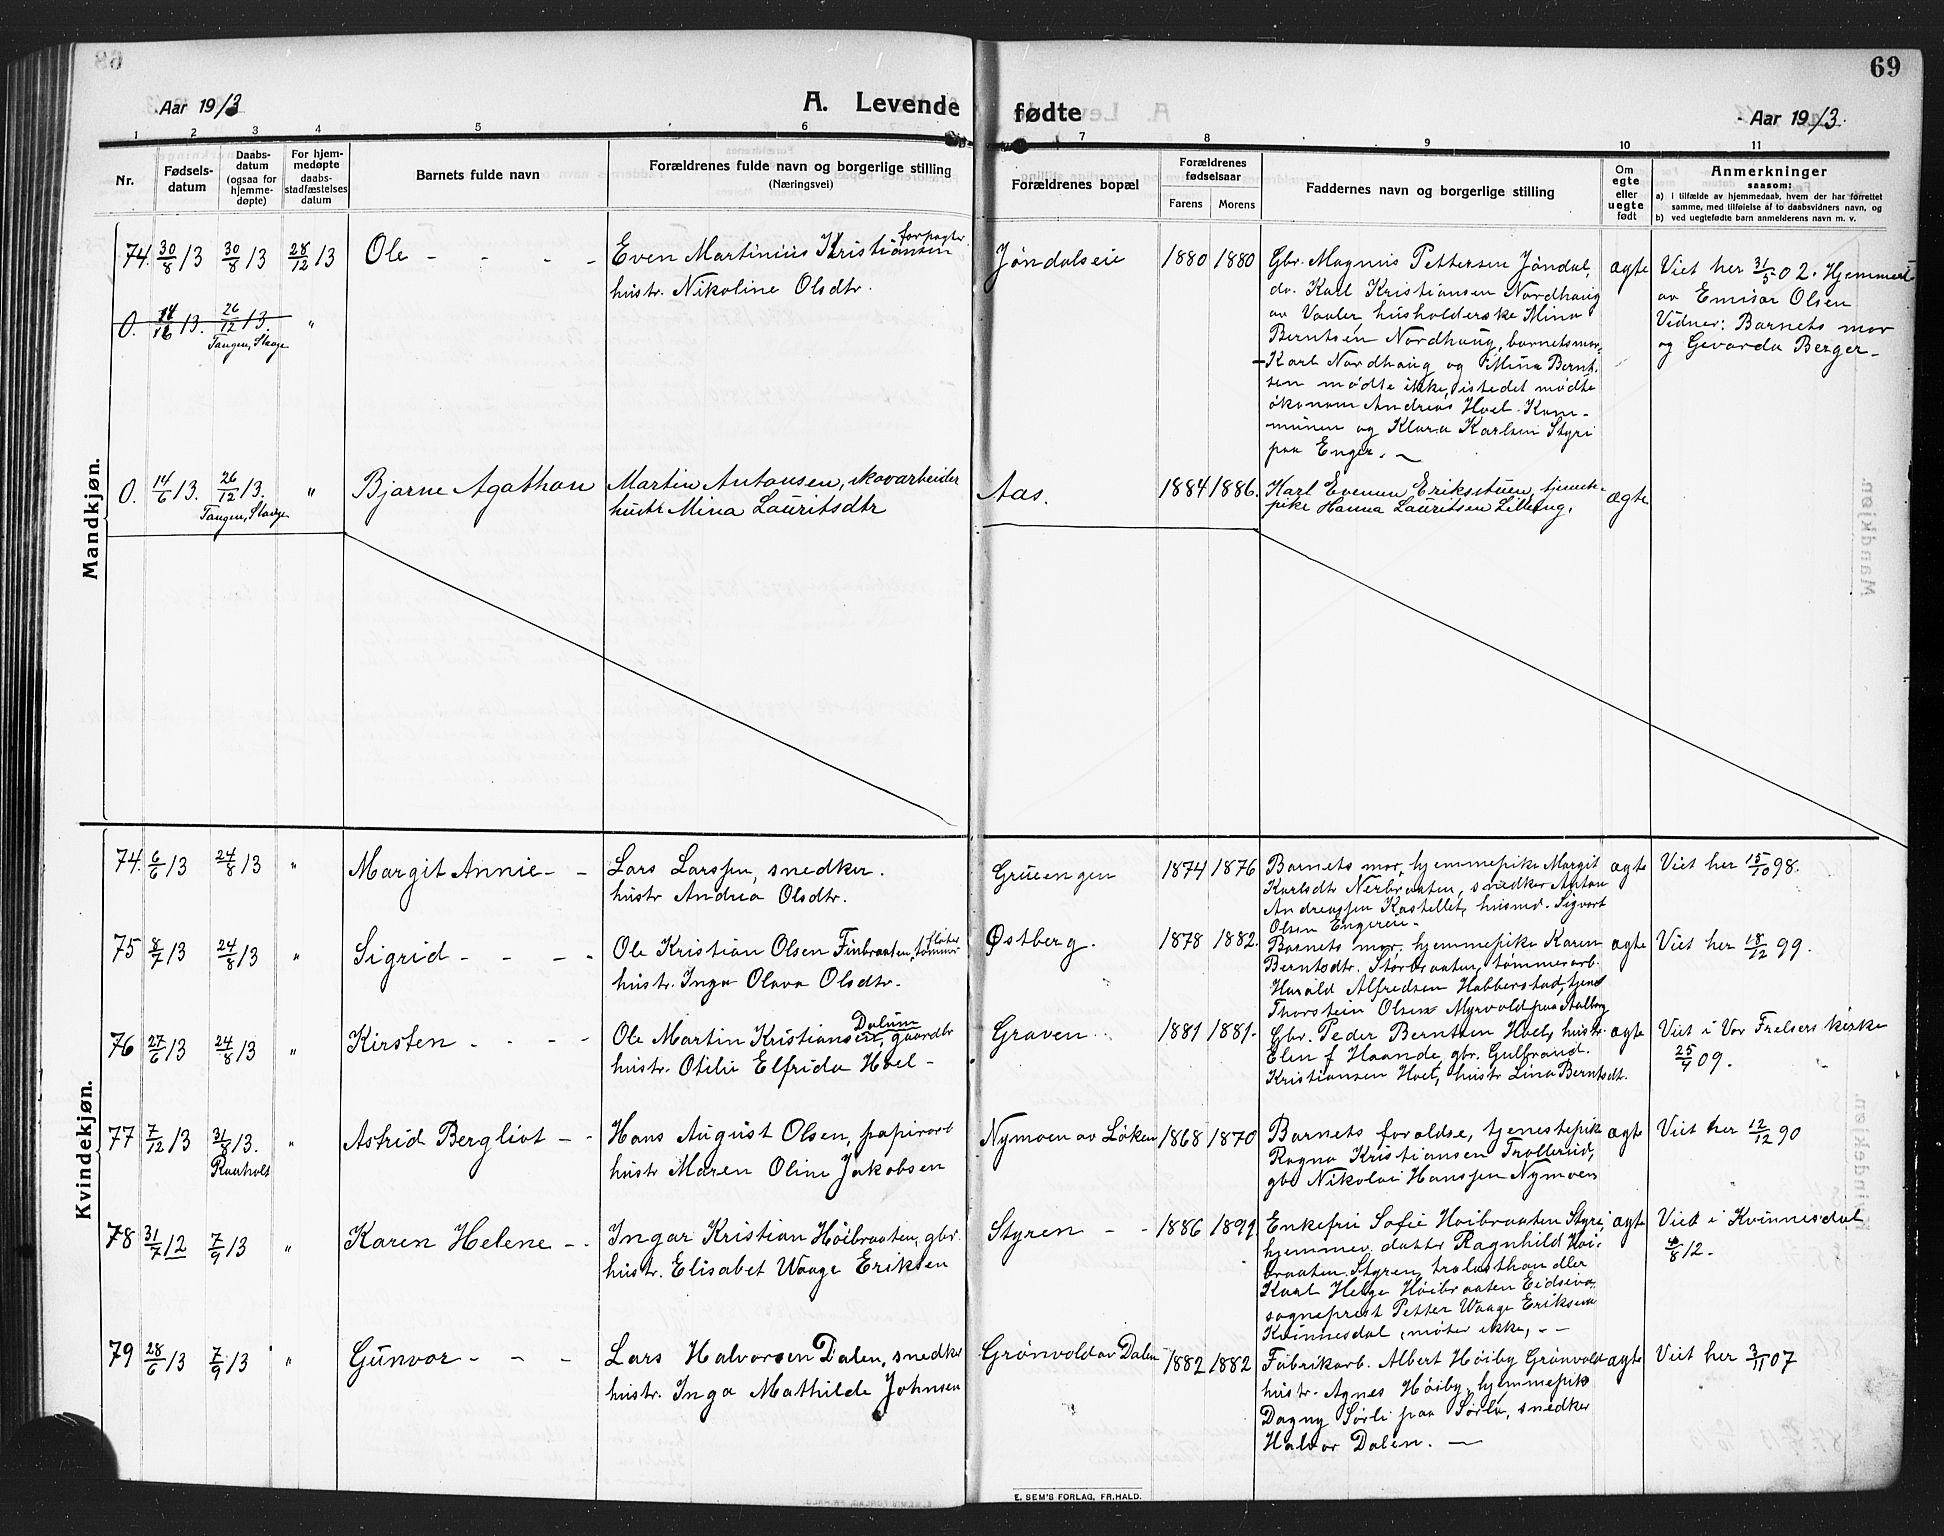 68
69
Aar 1913
A. Levende fødte
Aar 1913.
1 2 3 4 5 6 7 8 9 10 11
Nr.
Fødsels-
datum
Daabs-
datum
(ogsaa for
hjemme-
døpte)
For hjem-
medøpte
daabs-
stadfæstelses
datum
Barnets fulde navn
Forældrenes fulde navn og borgerlige stilling
(Næringsvei)
Forældrenes bopæl
Forældrenes
fødselsaar
Farens Morens
Faddernes navn og borgerlige stilling
Om
egte
eller
uegte
født
Anmerkninger
saasom:
a) i tilfælde av hjemmedaab, hvem der har forrettet
samme, med tilføielse af to daabsvidners navn, og
b) ved uegtefødte barn anmelderens navn m. v.
Mandkjøn.
74. 30/8 13 30/8 13 28/12 13 Ole - - - -
Even Martinius Kristiansen forpagter
hustr. Nikoline Olsdtr.
Jøndalseie 1880 1880
Gbr. Magnus Pettersen Jøndal,
do. Karl Kristiansen Nordhaug
av Vaaler, husholderske Mina
Berntsen Nordhaug, barnetsmor-
Karl Nordhaug og Mina Bernt.
sen mødte ikke, istedet mødte
økonom Andreas Hoel Kom-
munen og Klara Karlsen Styri
paa Enger. -
ægte
Viet her 31/5 02. Hjemmed.
av Emisar Olsen
Vidner: Barnets mor
og Gevarda Berger-
0. 14/16 13. 26/12 13. "
Tangen, Stange
0. 14/6 13. 26/12 13. " Bjarne Agathon
Tangen, Stange
Martin Antonsen, skovarbeider
hustr Mina Lauritsdtr
Aas. 1884 1886.
Karl Evensen Eriksstuen, tjeneste-
pike Hanna Lauritsen Lilleng.
ægte
Kvindekjøn.
74. 6/6 13 24/8 13 " Margit Annie - -
Lars Larssen, snedker.
hustr Andrea Olsdtr.
Grueengen 1874 1876
Barnets mor, hjemmepike Margit
Karlsdtr Nerbraaten, snedker Anton
Andreassen Kastellet, husmd. Sigvart
Olsen Engereie-
ægte Viet her 15/10 98.
75 8/7 13 24/8 13 " Sigrid - - - -
Ole Kristian Olsen Finbraaten, tømmerfløter
hustr. Inga Olava Olsdtr.
Østberg. 1878 1882.
Barnets mor, hjemmepike Karen
Berntsdtr. Storbraaten, tømmerarb.
Harald Alfredsen Habberstad, tjener
Thorstein Olsen Myrvold paa Aalborg
ægte Viet her 18/12 99.
76 27/6 13 24/8 13 " Kirsten - - - -
Ole Martin Kristiansen Dalum, gaardbr
hustr. Otilie Elfrida Hoel -
Graven 1881 1881.
Gbr. Peder Berntsen Hoel, hustr.
Elen f Haande, gbr. Gulbrand.
Kristiansen Hoel, hustr Lina Berntsdt.
ægte Viet i Vor Frelsers kirke
25/4 09.
77 7/12 13 31/8 13. " Astrid Bergliot - -
Raaholt
Hans August Olsen, papirarb
hustr Maren Oline Jakobsen
Nymoen av Løken 1868 1870
Barnets foræld­re, tjenestepik
Ragna Kristiansen Trollerud,
gbr Nikolai Hanssen Nymoen
ægte Viet her 12/12 90
78 31/7 12 7/9 13 " Karen Helene - -
Ingar Kristian Høibraaten, gbr.
hustr. Elisabet Waage Eriksen
Styren - - 1886 1892
Enkefru Sofie Høibraaten Styri,
hjemmev. datter Ragnhild Høi-
braaten Styren, trælasthandler
Karl Helge Høibraaten Eidsvo.
sogneprest Petter Waage Eriksen
Kvinnesdal, møter ikke, - -
ægte Viet i Kvinnesdal
6/8 12.
79 28/6 13 7/9 13 " Gunvor - - -
Lars Halvorsen Dalen, snedker
hustr. Inga Mathilde Johnsen
Grønvold av Dalen 1882 1882
Fabrikarb. Albert Høiby Grønvold
hustr. Agnes Høiby, hjemmepik
Dagny Sørli paa Sørli, snedker
Halvor Dalen. -
ægte Viet her 3/11 07
E. SEM'S FORLAG, FR.HALD.